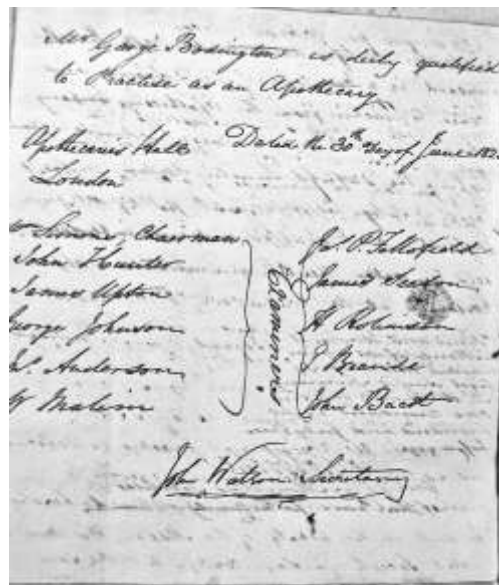 Mr George Bodington is duly qualified
to Practise as an Apothecary
Apothecaries Hall Dated the 30th Day of June
London
Simons, Chairman
John Hunter
James Upton
George Johnson
Anderson
W Malim
Examiners
James Seaton
H Robinson
Brande
John Bacot
John Watson Secretary